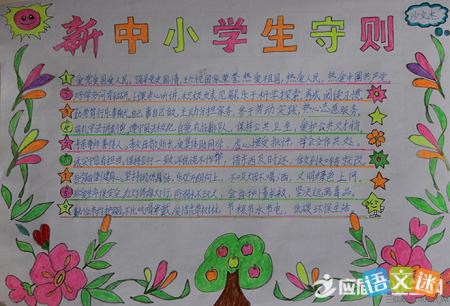 新中小学生守则
爱党爱国爱人民。了解党史国情,珍视国家荣誉,热爱祖国,热爱人民,热爱中国共产党。
好学多问肯钻研。上课专心听讲,积极发表见解,乐于科学探索,养成阅读习惯。
勤劳笃行乐奉献。自己事自己做,主动分担家务,参与劳动实践,热心志愿服务。
明礼守法讲美德。遵守国法校纪,自觉礼让排队,保持公共卫生,爱护公共财物。
孝亲尊师善待人。孝父母敬师长,爱集体助同学,虚心接受批评,学会合作共处。
诚实守信有担当。保持言行一致,不说谎不作弊,借东西及时还,做到知错就改。
自强自律健身心。坚持锻炼身体,乐观开朗向上,不吸烟不喝酒,文明绿色上网。
珍爱生命保安全。红灯停绿灯行,防溺水不玩火,会自护懂求救,坚决远离毒品。
勤俭节约护家园。不比吃喝穿戴,爱惜花草树木,节粮节水节电,低碳环保生活。
应届语文迷